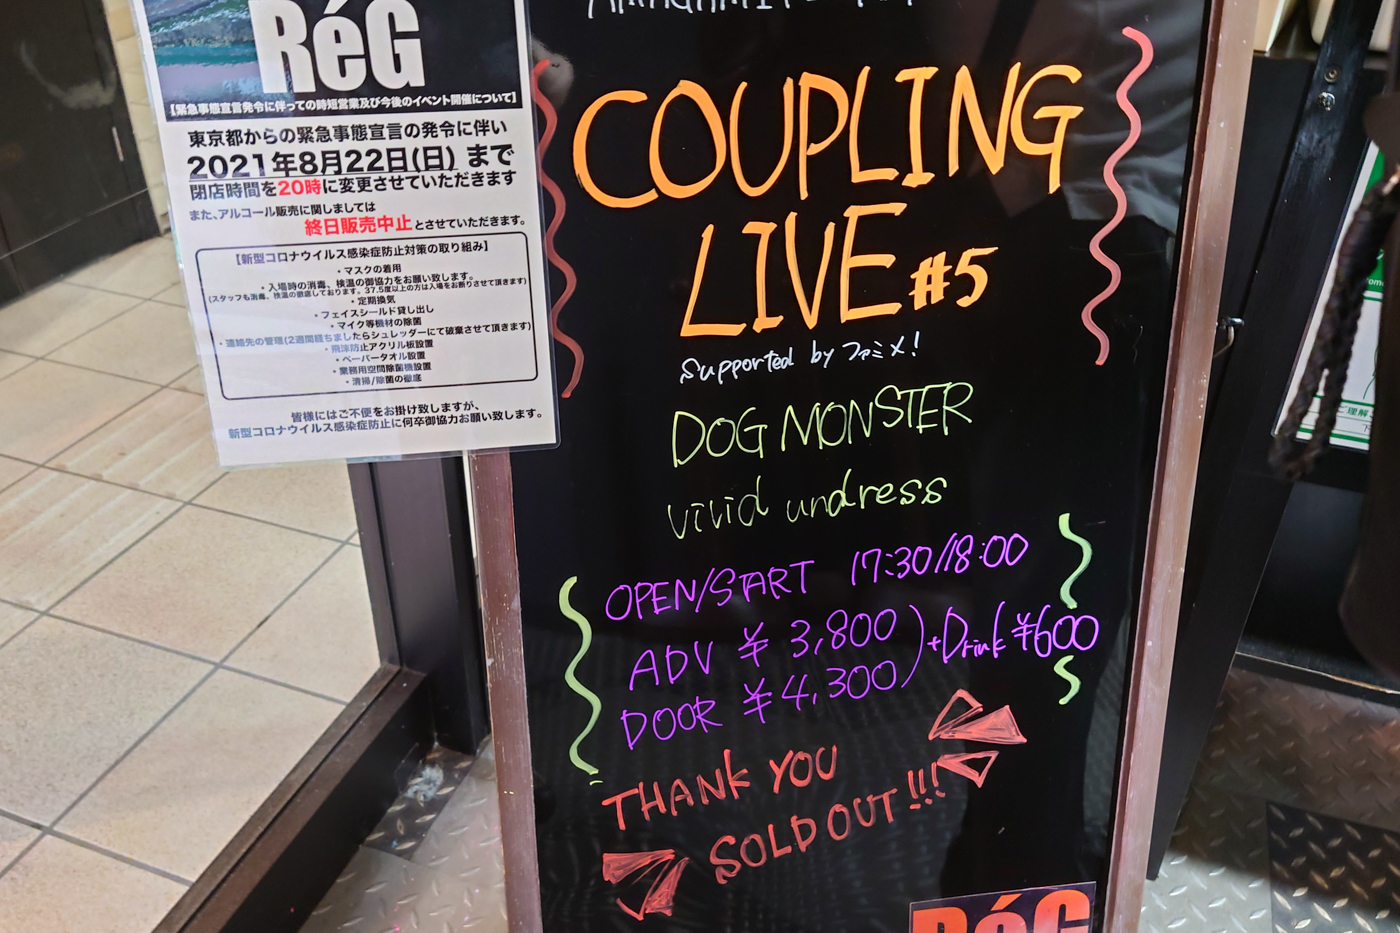 RéG
【緊急事態宣言発令に伴っての時短営業及び今後のイベント開催について】
東京都からの緊急事態宣言の発令に伴い
2021年8月22日(日)まで
閉店時間を20時に変更させていただきます
また、アルコール販売に関しましては
終日販売中止とさせていただきます。
【新型コロナウイルス感染症防止対策の取り組み】
・マスクの着用
・入場時の消毒、検温の御協力をお願い致します。
(スタッフも消毒、検温の徹底しております。37.5度以上の方は入場をお断りさせて頂きます)
・定期換気
・フェイスシールド貸し出し
・マイク等機材の除菌
・連絡先の管理(2週間経ちましたらシュレッダーにて破棄させて頂きます)
・飛沫防止アクリル板設置
・ペーパータオル設置
・業務用空間除菌機設置
・清掃/除菌の徹底
皆様にはご不便をお掛け致しますが、
新型コロナウイルス感染症防止に何卒御協力お願い致します。
COUPLING
LIVE #5
Supported by ファミメ!
DOG MONSTER
vivid undress
OPEN/START 17:30/18:00
ADV ¥3,800
DOOR ¥4,300) +Drink ¥600
THANK YOU
SOLD OUT!!!
RéG
ご理解